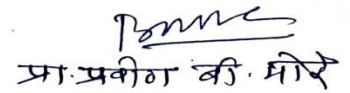 प्रा. प्रवीण बी. मोरे